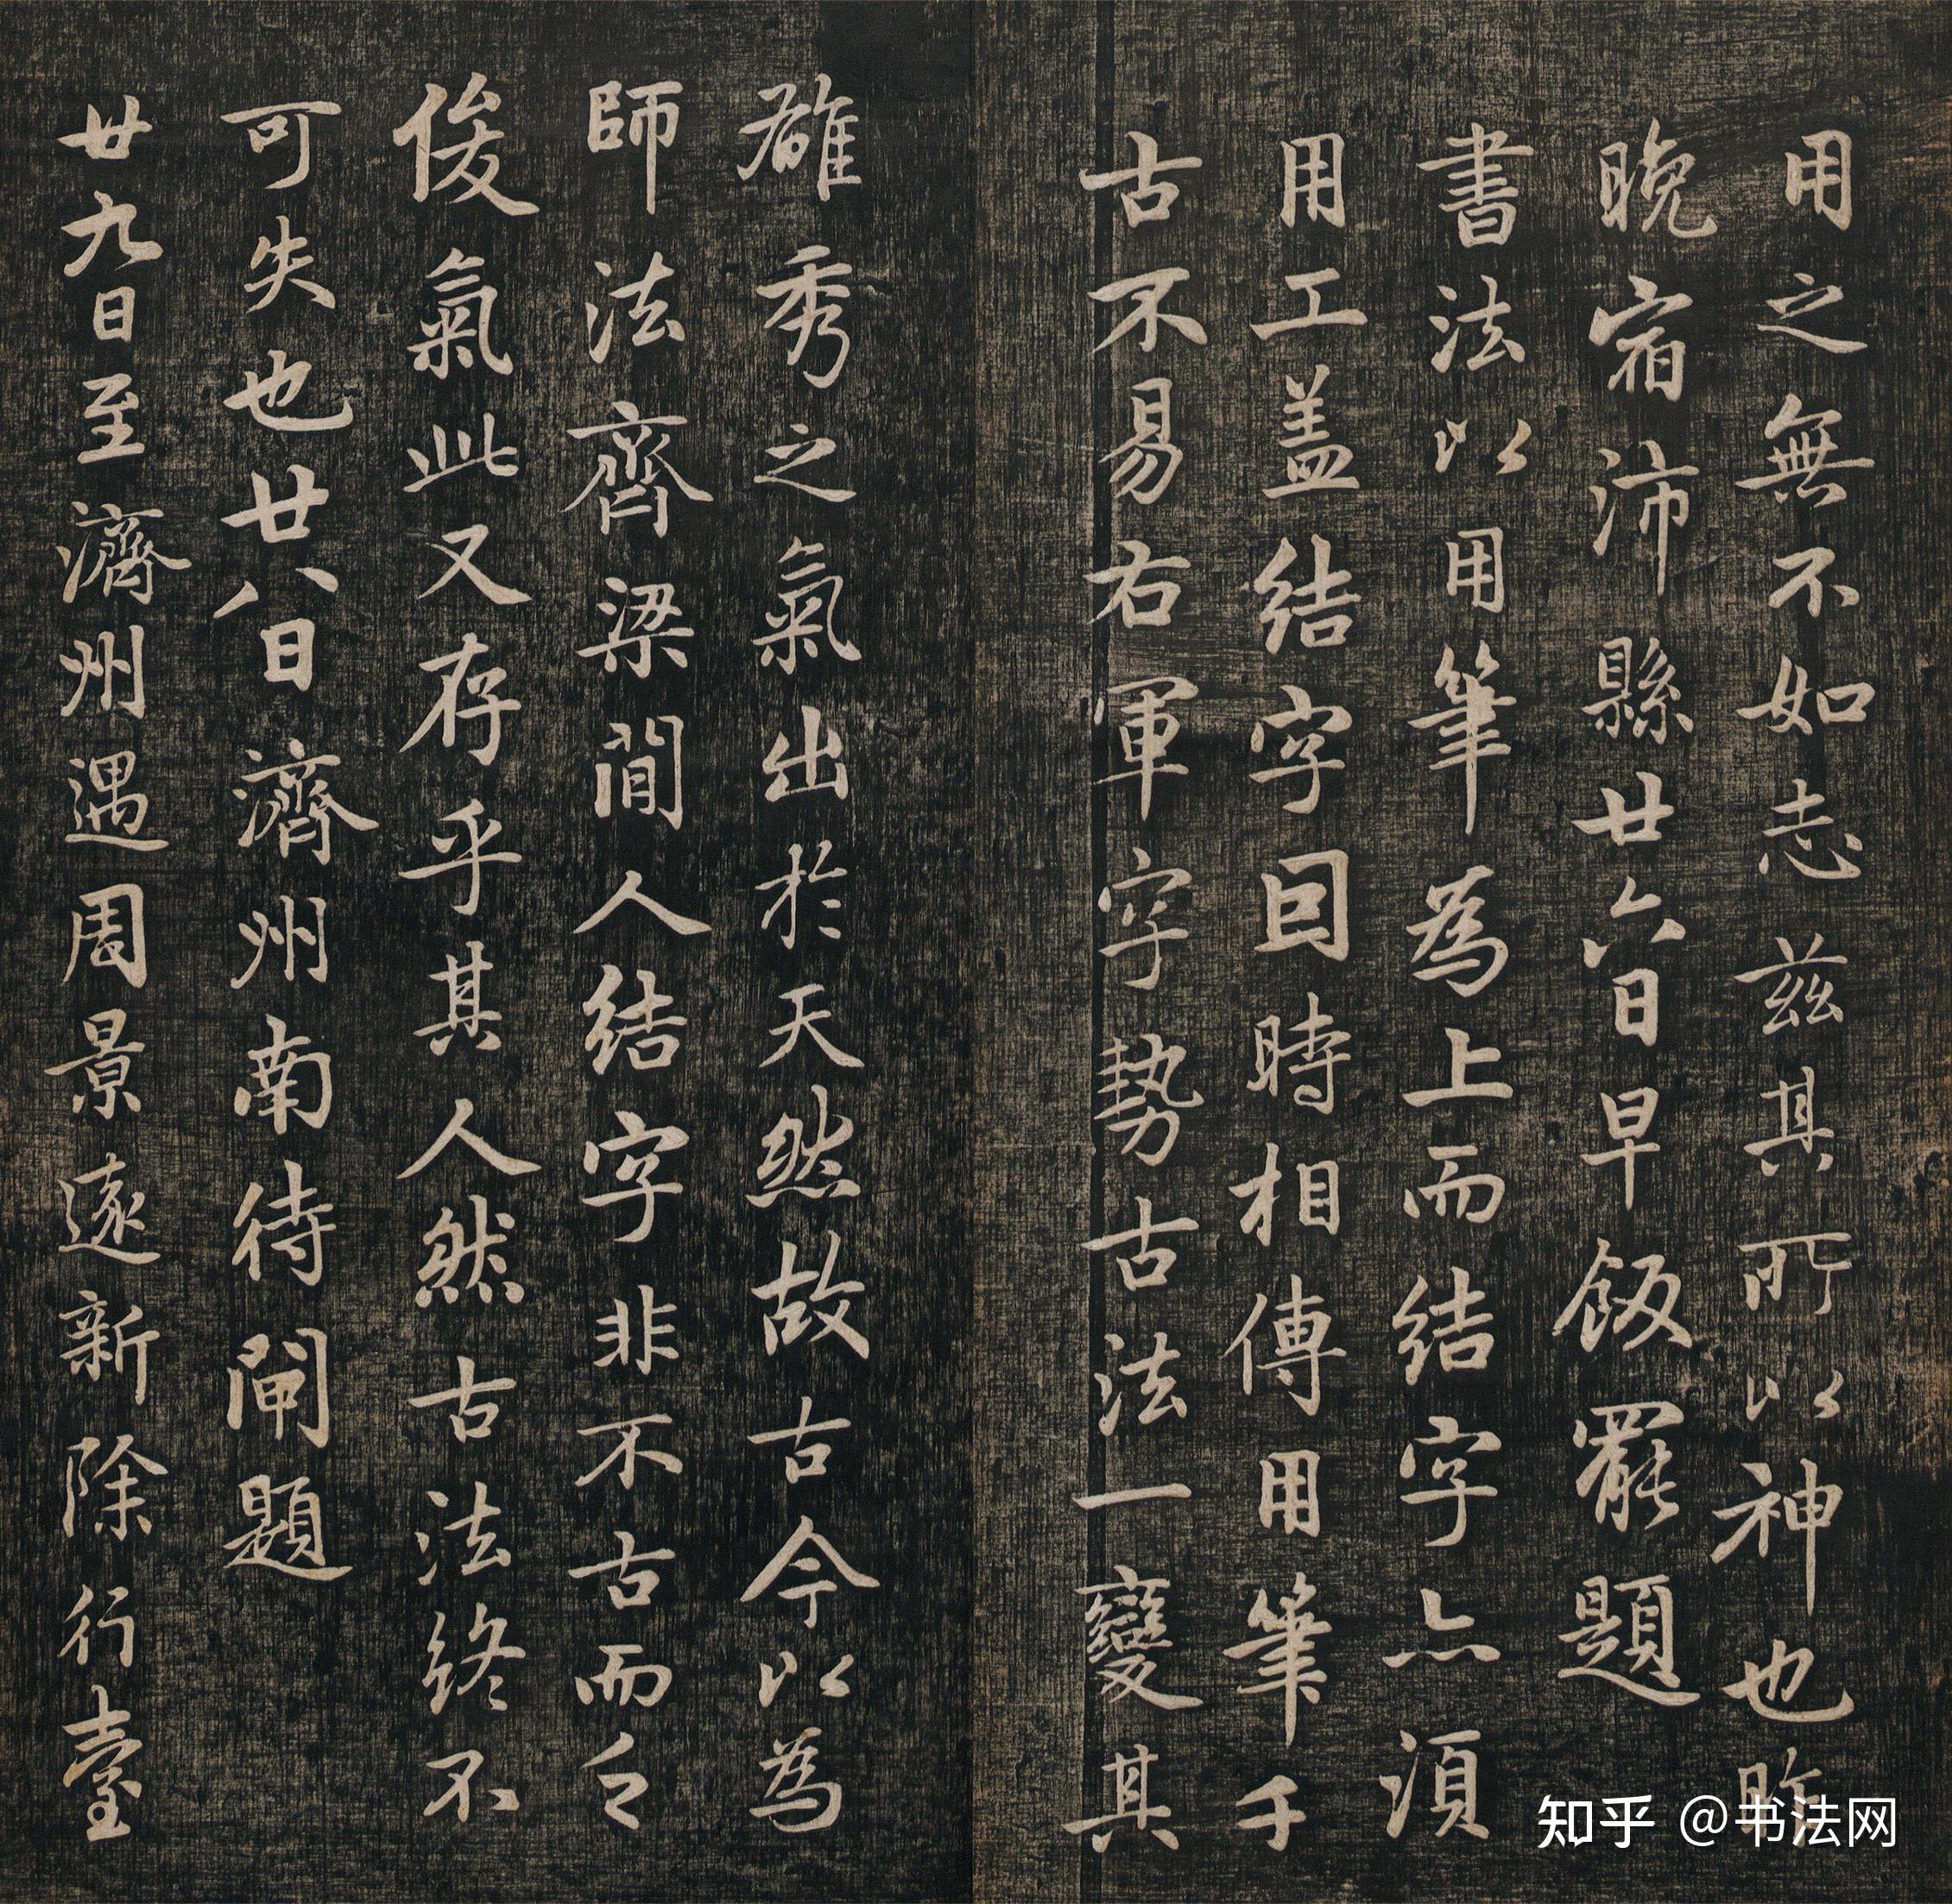 用之無不如志茲其所以神也昨
晚宿沛縣廿六日早飯罷題
書法以用筆為上而結字亦須
用工盖結字因時相傳用筆千
古不易右軍字勢古法一變其
雄秀之氣出於天然故古今以為
師法齊梁間人結字非不古而乏
俊氣此又存乎其人然古法終不
可失也廿八日濟州南待閘題
廿九日至濟州遇周景遠新除行臺
知乎 @书法网